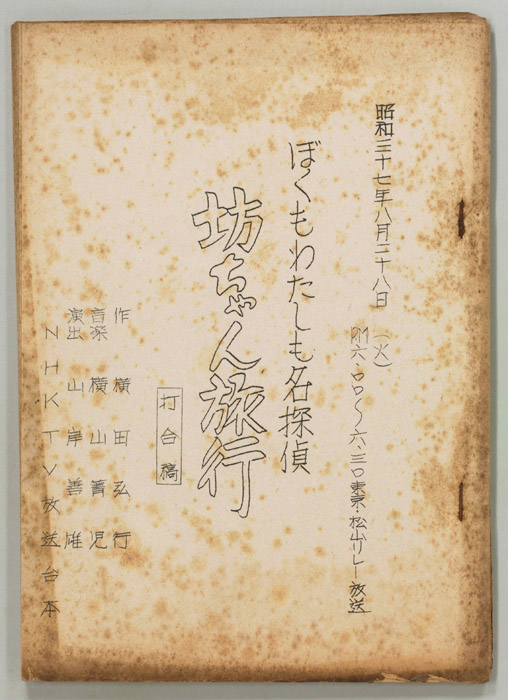 昭和三十七年八月二十八日
(火)
PM六・〇〇〜六・三〇東京・松山リレー放送
ぼくもわたしも名探偵
坊ちゃん旅行
打合稿
作 横田弘行
音楽 横山菁児
演出 山岸善雄
NHKTV放送台本